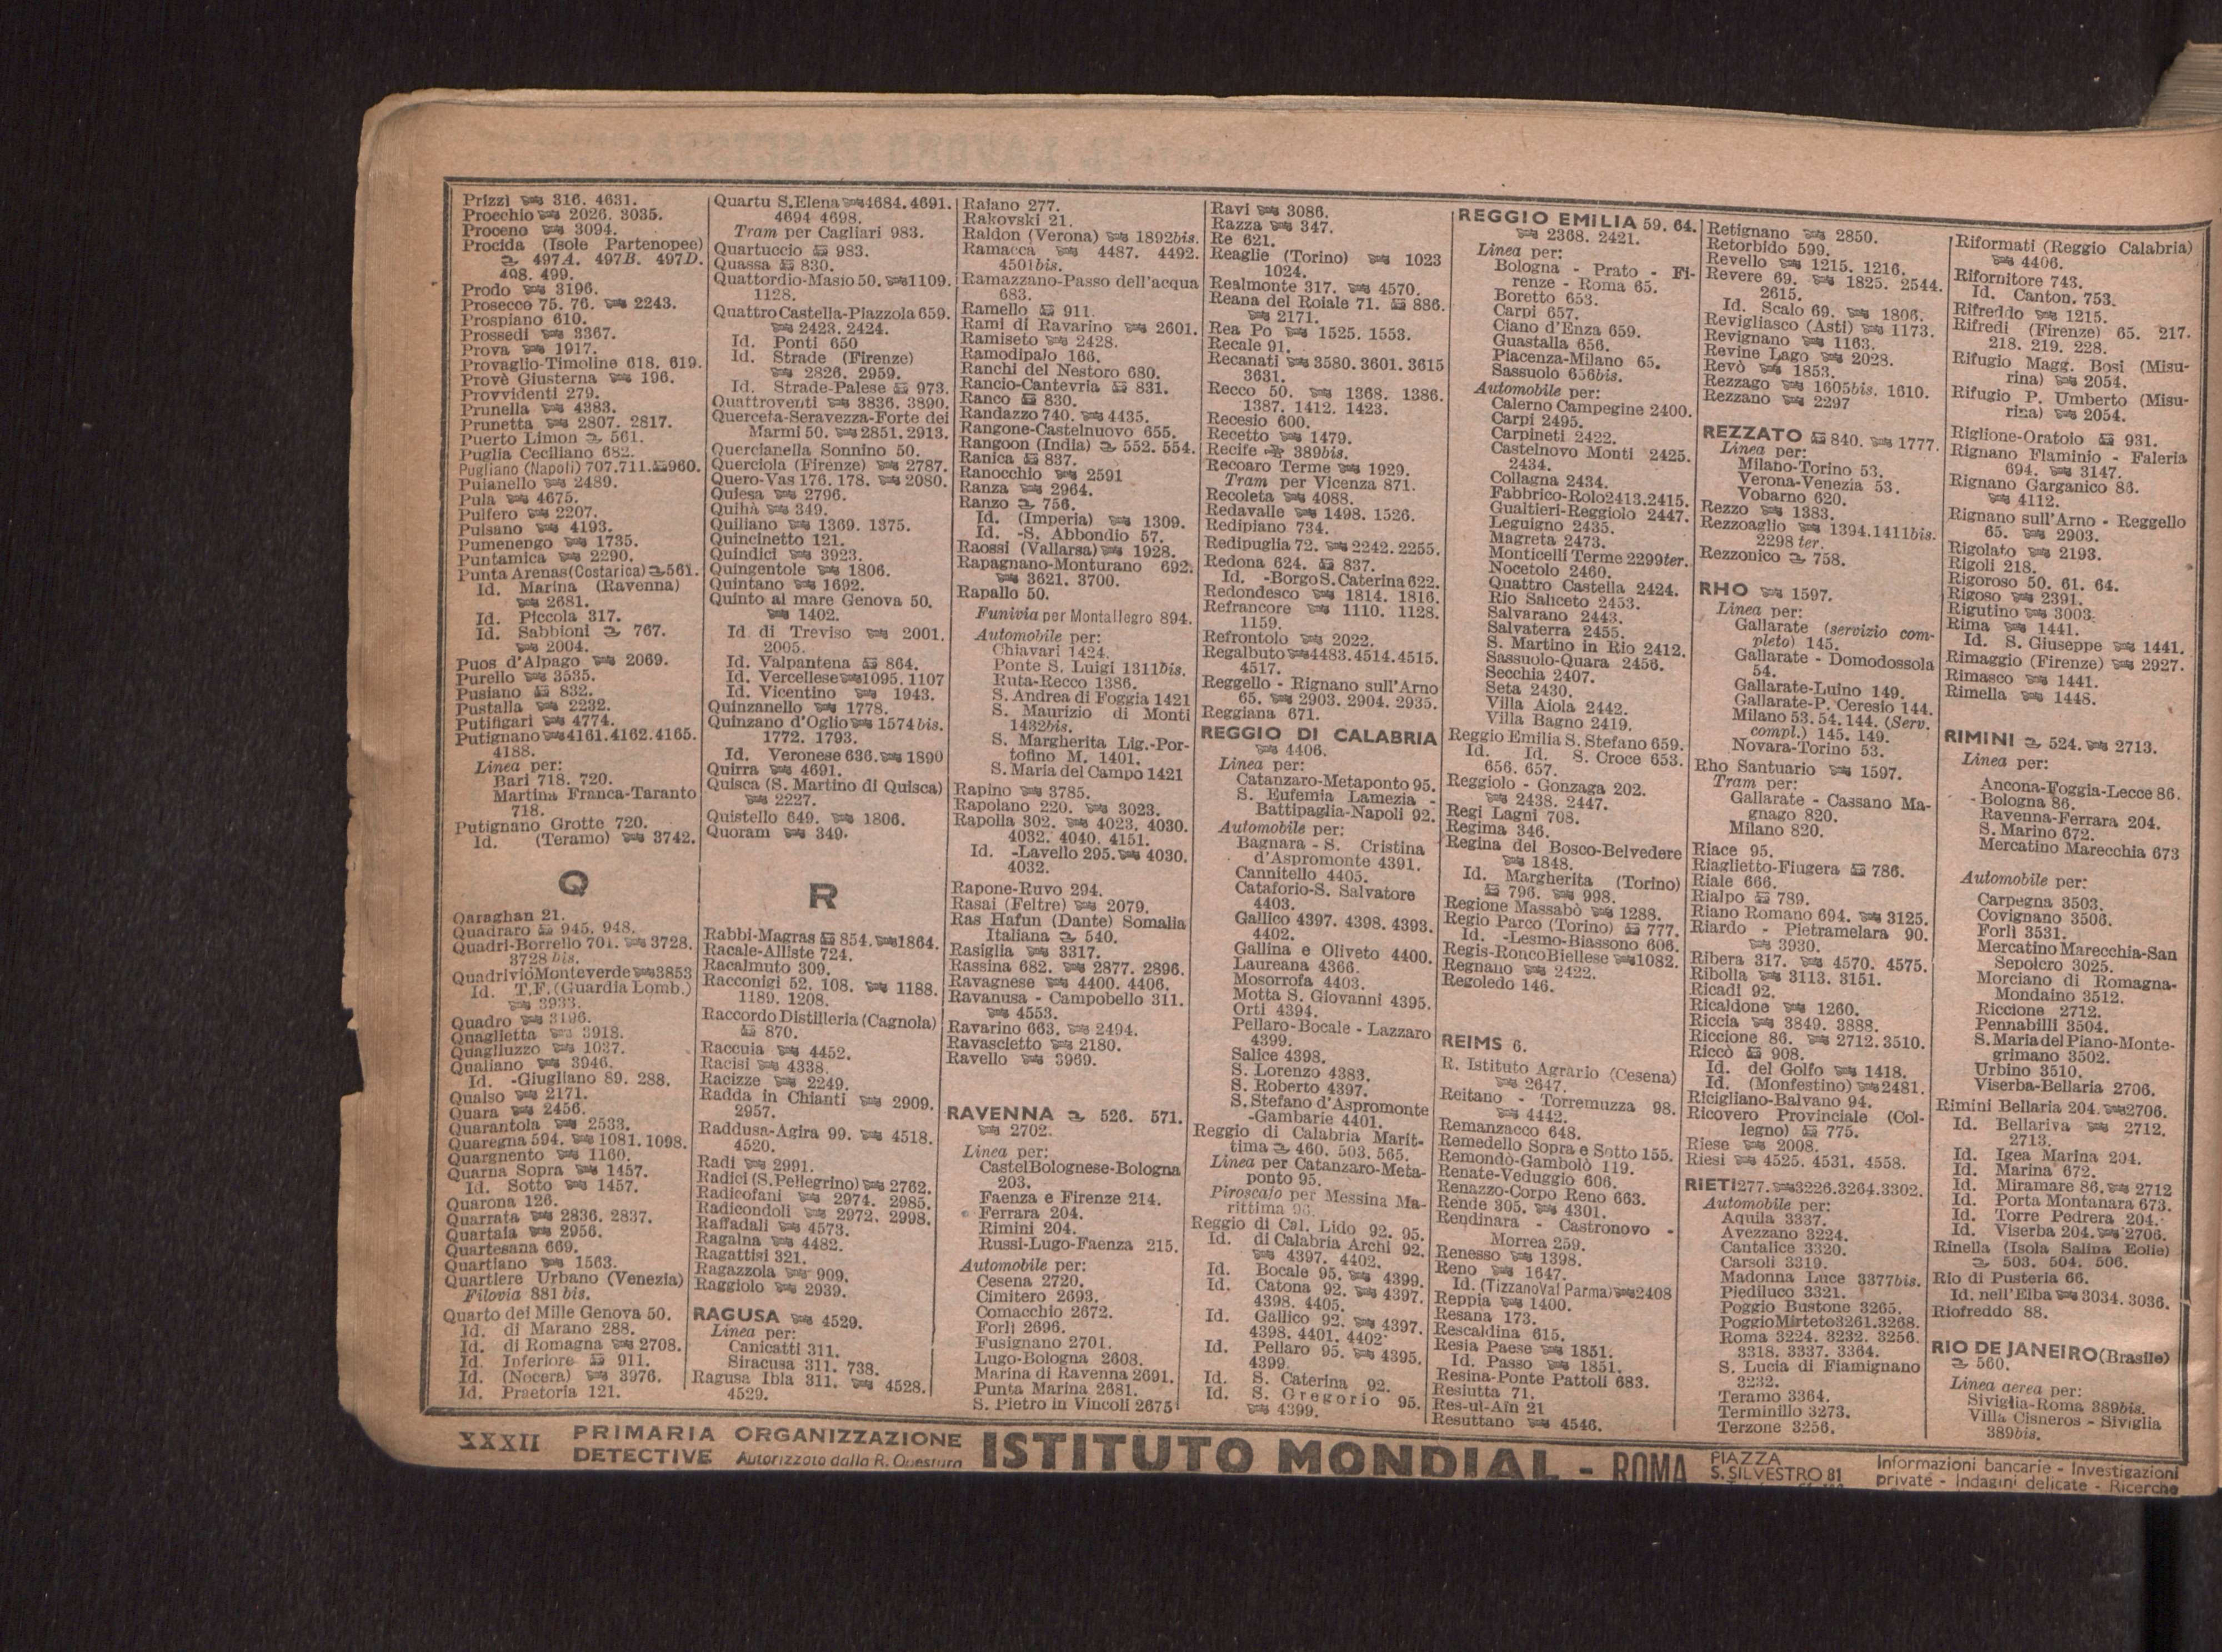 Prizzi 316. 4631.
Procchio 2026. 3035.
Proceno 3094.
Procida (Isole Partenopee)
497A. 497B. 497D.
498. 499.
Prodo 3196.
Prosecco 75. 76. 2243.
Prospiano 610.
Prossedi 3367.
Prova 1917.
Provaglio-Timoline 618. 619.
Provè Giusterna 196.
Provvidenti 279.
Prunella 4383.
Prunetta 2807. 2817.
Puerto Limon 561.
Puglia Ceciliano 682.
Pugliano (Napoli) 707.711. 960.
Puianello 2489.
Pula 4675.
Pulfero 2207.
Pulsano 4193.
Pumenengo 1735.
Puntamica 2290.
Punta Arenas (Costarica) 561.
Id. Marina (Ravenna)
2681.
Id. Piccola 317.
Id. Sabbioni 767.
2004.
Puos d'Alpago 2069.
Purello 3535.
Pusiano 832.
Pustalla 2232.
Putifigari 4774.
Putignano 4161.4162.4165.
4188.
Linea per:
Bari 718. 720.
Martina Franca-Taranto
718.
Putignano Grotte 720.
Id. (Teramo) 3742.
Q
Qaraghan 21.
Quadraro 945. 948.
Quadri-Borrello 701. 3728.
3728 bis.
Quadrivio Monteverde 3853
Id. T.F. (Guardia Lomb.)
3933.
Quadro 3196.
Quaglietta 3918.
Quagliuzzo 1037.
Qualiano 3946.
Id. -Giugliano 89. 288.
Qualso 2171.
Quara 2456.
Quarantola 2533.
Quaregna 594. 1081. 1098.
Quargnento 1160.
Quarna Sopra 1457.
Id. Sotto 1457.
Quarona 126.
Quarrata 2836. 2837.
Quartaia 2956.
Quartesana 669.
Quartiano 1563.
Quartiere Urbano (Venezia)
Filovia 881 bis.
Quarto dei Mille Genova 50.
Id. di Marano 288.
Id. di Romagna 2708.
Id. Inferiore 911.
Id. (Nocera) 3976.
Id. Praetoria 121.
Quartu S. Elena 4684. 4691.
4694 4698.
Tram per Cagliari 983.
Quartuccio 983.
Quassa 830.
Quattordio-Masio 50. 1109.
1128.
Quattro Castella-Piazzola 659.
2423. 2424.
Id. Ponti 650
Id. Strade (Firenze)
2826. 2959.
Id. Strade-Palese 973.
Quattroventi 3836. 3890.
Querceta-Seravezza-Forte dei
Marmi 50. 2851. 2913.
Quercianella Sonnino 50.
Querciola (Firenze) 2787.
Quero-Vas 176. 178. 2080.
Quiesa 2796.
Quihà 349.
Quiliano 1369. 1375.
Quincinetto 121.
Quindici 3923.
Quingentole 1806.
Quintano 1692.
Quinto al mare Genova 50.
1402.
Id di Treviso 2001.
2005.
Id. Valpantena 864.
Id. Vercellese 1095. 1107
Id. Vicentino 1943.
Quinzanello 1778.
Quinzano d'Oglio 1574bis.
1772. 1793.
Id. Veronese 636. 1890
Quirra 4691.
Quisca (S. Martino di Quisca)
2227.
Quistello 649. 1806.
Quoram 349.
R
Rabbi-Magras 854. 1864.
Racale-Alliste 724.
Racalmuto 309.
Racconigi 52. 108. 1188.
1189. 1208.
Raccordo Distilleria (Cagnola)
870.
Raccuia 4452.
Racisi 4338.
Racizze 2249.
Radda in Chianti 2909.
2957.
Raddusa-Agira 99. 4518.
4520.
Radi 2991.
Radici (S. Pellegrino) 2762.
Radicofani 2974. 2985.
Radicondoli 2972. 2998.
Raffadali 4573.
Ragalna 4482.
Ragattisi 321.
Ragazzola 909.
Raggiolo 2939.
RAGUSA 4529.
Linea per:
Canicatti 311.
Siracusa 311. 738.
Ragusa Ibla 311. 4528.
4529.
Raiano 277.
Rakovski 21.
Raldon (Verona) 1892bis.
Ramacca 4487. 4492.
4501bis.
Ramazzano-Passo dell'acqua
683.
Ramello 911.
Rami di Ravarino 2601.
Ramiseto 2428.
Ramodipalo 166.
Ranchi del Nestoro 680.
Rancio-Cantevria 831.
Ranco 830.
Randazzo 740. 4435.
Rangone-Castelnuovo 655.
Rangoon (India) 552. 554.
Ranica 837.
Ranocchio 2591
Ranza 2964.
Ranzo 756.
Id. (Imperia) 1309.
Id. -S. Abbondio 57.
Raossi (Vallarsa) 1928.
Rapagnano-Monturano 692.
3621. 3700.
Rapallo 50.
Funivia per Montallegro 894.
Automobile per:
Chiavari 1424.
Ponte S. Luigi 1311bis.
Ruta-Recco 1386.
S. Andrea di Foggia 1421
S. Maurizio di Monti
1432bis.
S. Margherita Lig.-Por-
tofino M. 1401.
S. Maria del Campo 1421
Rapino 3785.
Rapolano 220. 3023.
Rapolla 302. 4023. 4030.
4032. 4040. 4151.
Id. -Lavello 295. 4030.
4032.
Rapone-Ruvo 294.
Rasai (Feltre) 2079.
Ras Hafun (Dante) Somalia
Italiana 540.
Rasiglia 3317.
Rassina 682. 2877. 2896.
Ravagnese 4400. 4406.
Ravanusa - Campobello 311.
4553.
Ravarino 663. 2494.
Ravascletto 2180.
Ravello 3969.
RAVENNA 526. 571.
2702.
Linea per:
Castel Bolognese-Bologna
203.
Faenza e Firenze 214.
Ferrara 204.
Rimini 204.
Russi-Lugo-Faenza 215.
Automobile per:
Cesena 2720.
Cimitero 2693.
Comacchio 2672.
Forlì 2696.
Fusignano 2701.
Lugo-Bologna 2608.
Marina di Ravenna 2691.
Punta Marina 2681.
S. Pietro in Vincoli 2675
Ravi 3086.
Razza 347.
Re 621.
Reaglie (Torino) 1023
1024.
Realmonte 317. 4570.
Reana del Roiale 71. 886.
2171.
Rea Po 1525. 1553.
Recale 91.
Recanati 3580. 3601. 3615
3631.
Recco 50. 1368. 1386.
1387. 1412. 1423.
Recesio 600.
Recetto 1479.
Recife 389bis.
Recoaro Terme 1929.
Tram per Vicenza 871.
Recoleta 4088.
Redavalle 1498. 1526.
Redipiano 734.
Redipuglia 72. 2242. 2255.
Redona 624. 837.
Id. -Borgo S. Caterina 622.
Redondesco 1814. 1816.
Refrancore 1110. 1128.
1159.
Refrontolo 2022.
Regalbuto 4483. 4514. 4515.
4517.
Reggello - Rignano sull'Arno
65. 2903. 2904. 2935.
Reggiana 671.
REGGIO DI CALABRIA
4406.
Linea per:
Catanzaro-Metaponto 95.
S. Eufemia Lamezia -
Battipaglia-Napoli 92.
Automobile per:
Bagnara - S. Cristina
d'Aspromonte 4391.
Cannitello 4405.
Cataforio-S. Salvatore
4403.
Gallico 4397. 4398. 4393.
4402.
Gallina e Oliveto 4400.
Laureana 4366.
Mosorrofa 4403.
Motta S. Giovanni 4395.
Orti 4394.
Pellaro-Bocale - Lazzaro
4399.
Salice 4398.
S. Lorenzo 4383.
S. Roberto 4397.
S. Stefano d'Aspromonte
-Gambarie 4401.
Reggio di Calabria Marit-
tima 460. 503. 565.
Linea per Catanzaro-Meta-
ponto 95.
Piroscafo per Messina Ma-
rittima 96.
Reggio di Cal. Lido 92. 95.
Id. di Calabria Archi 92.
4397. 4402.
Id. Bocale 95. 4399.
Id. Catona 92. 4397.
4398. 4405.
Id. Gallico 92. 4397.
4398. 4401. 4402
Id. Pellaro 95. 4395.
4399.
Id. S. Caterina 92.
Id. S. Gregorio 95.
4399.
REGGIO EMILIA 59. 64.
2368. 2421.
Linea per:
Bologna - Prato - Fi-
renze - Roma 65.
Boretto 653.
Carpi 657.
Ciano d'Enza 659.
Guastalla 656.
Piacenza-Milano 65.
Sassuolo 656bis.
Automobile per:
Calerno Campegine 2400.
Carpi 2495.
Carpineti 2422.
Castelnovo Monti 2425.
2434.
Collagna 2434.
Fabbrico-Rolo 2413. 2415.
Gualtieri-Reggiolo 2447.
Leguigno 2435.
Magreta 2473.
Monticelli Terme 2299ter.
Nocetolo 2460.
Quattro Castella 2424.
Rio Saliceto 2453.
Salvarano 2443.
Salvaterra 2455.
S. Martino in Rio 2412.
Sassuolo-Quara 2456.
Secchia 2407.
Seta 2430.
Villa Aiola 2442.
Villa Bagno 2419.
Reggio Emilia S. Stefano 659.
Id. Id. S. Croce 653.
656. 657.
Reggiolo - Gonzaga 202.
2438. 2447.
Regi Lagni 708.
Regima 346.
Regina del Bosco-Belvedere
1848.
Id. Margherita (Torino)
796. 998.
Regione Massabò 1288.
Regio Parco (Torino) 777.
Id. -Lesmo-Biassono 606.
Regis-Ronco Biellese 1082.
Regnano 2422.
Regoledo 146.
REIMS 6.
R. Istituto Agrario (Cesena)
2647.
Reitano - Torremuzza 98.
4442.
Remanzacco 648.
Remedello Sopra e Sotto 155.
Remondò-Gambolò 119.
Renate-Veduggio 606.
Renazzo-Corpo Reno 663.
Rende 305. 4301.
Rendinara - Castronovo -
Morrea 259.
Renesso 1398.
Reno 1647.
Id. (Tizzano Val Parma) 2408
Reppia 1400.
Resana 173.
Rescaldina 615.
Resia Paese 1851.
Id. Passo 1851.
Resina-Ponte Pattoli 683.
Resiutta 71.
Res-ul-Aïn 21
Resuttano 4546.
Retignano 2850.
Retorbido 599.
Revello 1215. 1216.
Revere 69. 1825. 2544.
2615.
Id. Scalo 69. 1806.
Revigliasco (Asti) 1173.
Revignano 1163.
Revine Lago 2028.
Revò 1853.
Rezzago 1605bis. 1610.
Rezzano 2297
REZZATO 840. 1777.
Linea per:
Milano-Torino 53.
Verona-Venezia 53.
Vobarno 620.
Rezzo 1383.
Rezzoaglio 1394.1411bis.
2298 ter.
Rezzonico 758.
RHO 1597.
Linea per:
Gallarate (servizio com-
pleto) 145.
Gallarate - Domodossola
54.
Gallarate-Luino 149.
Gallarate-P. Ceresio 144.
Milano 53. 54. 144. (Serv.
compl.) 145. 149.
Novara-Torino 53.
Rho Santuario 1597.
Tram per:
Gallarate - Cassano Ma-
gnago 820.
Milano 820.
Riace 95.
Riaglietto-Fiugera 786.
Riale 666.
Rialpo 789.
Riano Romano 694. 3125.
Riardo - Pietramelara 90.
3930.
Ribera 317. 4570. 4575.
Ribolla 3113. 3151.
Ricadi 92.
Ricaldone 1260.
Riccia 3849. 3888.
Riccione 86. 2712. 3510.
Riccò 908.
Id. del Golfo 1418.
Id. (Monfestino) 2481.
Ricigliano-Balvano 94.
Ricovero Provinciale (Col-
legno) 775.
Riese 2008.
Riesi 4525. 4531. 4558.
RIETI 277. 3226.3264.3302.
Automobile per:
Aquila 3337.
Avezzano 3224.
Cantalice 3320.
Carsoli 3319.
Madonna Luce 3377bis.
Piediluco 3321.
Poggio Bustone 3265.
Poggio Mirteto 3261.3268.
Roma 3224. 3232. 3256.
3318. 3337. 3364.
S. Lucia di Fiamignano
3232.
Teramo 3364.
Terminillo 3273.
Terzone 3256.
Riformati (Reggio Calabria)
4406.
Rifornitore 743.
Id. Canton. 753.
Rifreddo 1215.
Rifredi (Firenze) 65. 217.
218. 219. 228.
Rifugio Magg. Bosi (Misu-
rina) 2054.
Rifugio P. Umberto (Misu-
rina) 2054.
Riglione-Oratoio 931.
Rignano Flaminio - Faleria
694. 3147.
Rignano Garganico 86.
4112.
Rignano sull'Arno - Reggello
65. 2903.
Rigolato 2193.
Rigoli 218.
Rigoroso 50. 61. 64.
Rigoso 2391.
Rigutino 3003.
Rima 1441.
Id. S. Giuseppe 1441.
Rimaggio (Firenze) 2927.
Rimasco 1441.
Rimella 1448.
RIMINI 524. 2713.
Linea per:
Ancona-Foggia-Lecce 86.
- Bologna 86.
Ravenna-Ferrara 204.
S. Marino 672.
Mercatino Marecchia 673
Automobile per:
Carpegna 3503.
Covignano 3506.
Forlì 3531.
Mercatino Marecchia-San
Sepolcro 3025.
Morciano di Romagna-
Mondaino 3512.
Riccione 2712.
Pennabilli 3504.
S. Maria del Piano-Monte-
grimano 3502.
Urbino 3510.
Viserba-Bellaria 2706.
Rimini Bellaria 204. 2706.
Id. Bellariva 2712.
2713.
Id. Igea Marina 204.
Id. Marina 672.
Id. Miramare 86. 2712
Id. Porta Montanara 673.
Id. Torre Pedrera 204.
Id. Viserba 204. 2706.
Rinella (Isola Salina Eolie)
503. 504. 506.
Rio di Pusteria 66.
Id. nell'Elba 3034. 3036.
Riofreddo 88.
RIO DE JANEIRO (Brasile)
560.
Linea aerea per:
Siviglia-Roma 389bis.
Villa Cisneros - Siviglia
389bis.
XXXII PRIMARIA ORGANIZZAZIONE
DETECTIVE Autorizzato dalla R. Questura
ISTITUTO MONDIAL - ROMA
PIAZZA
S. SILVESTRO 81
Informazioni bancarie - Investigazioni
private - Indagini delicate - Ricerche